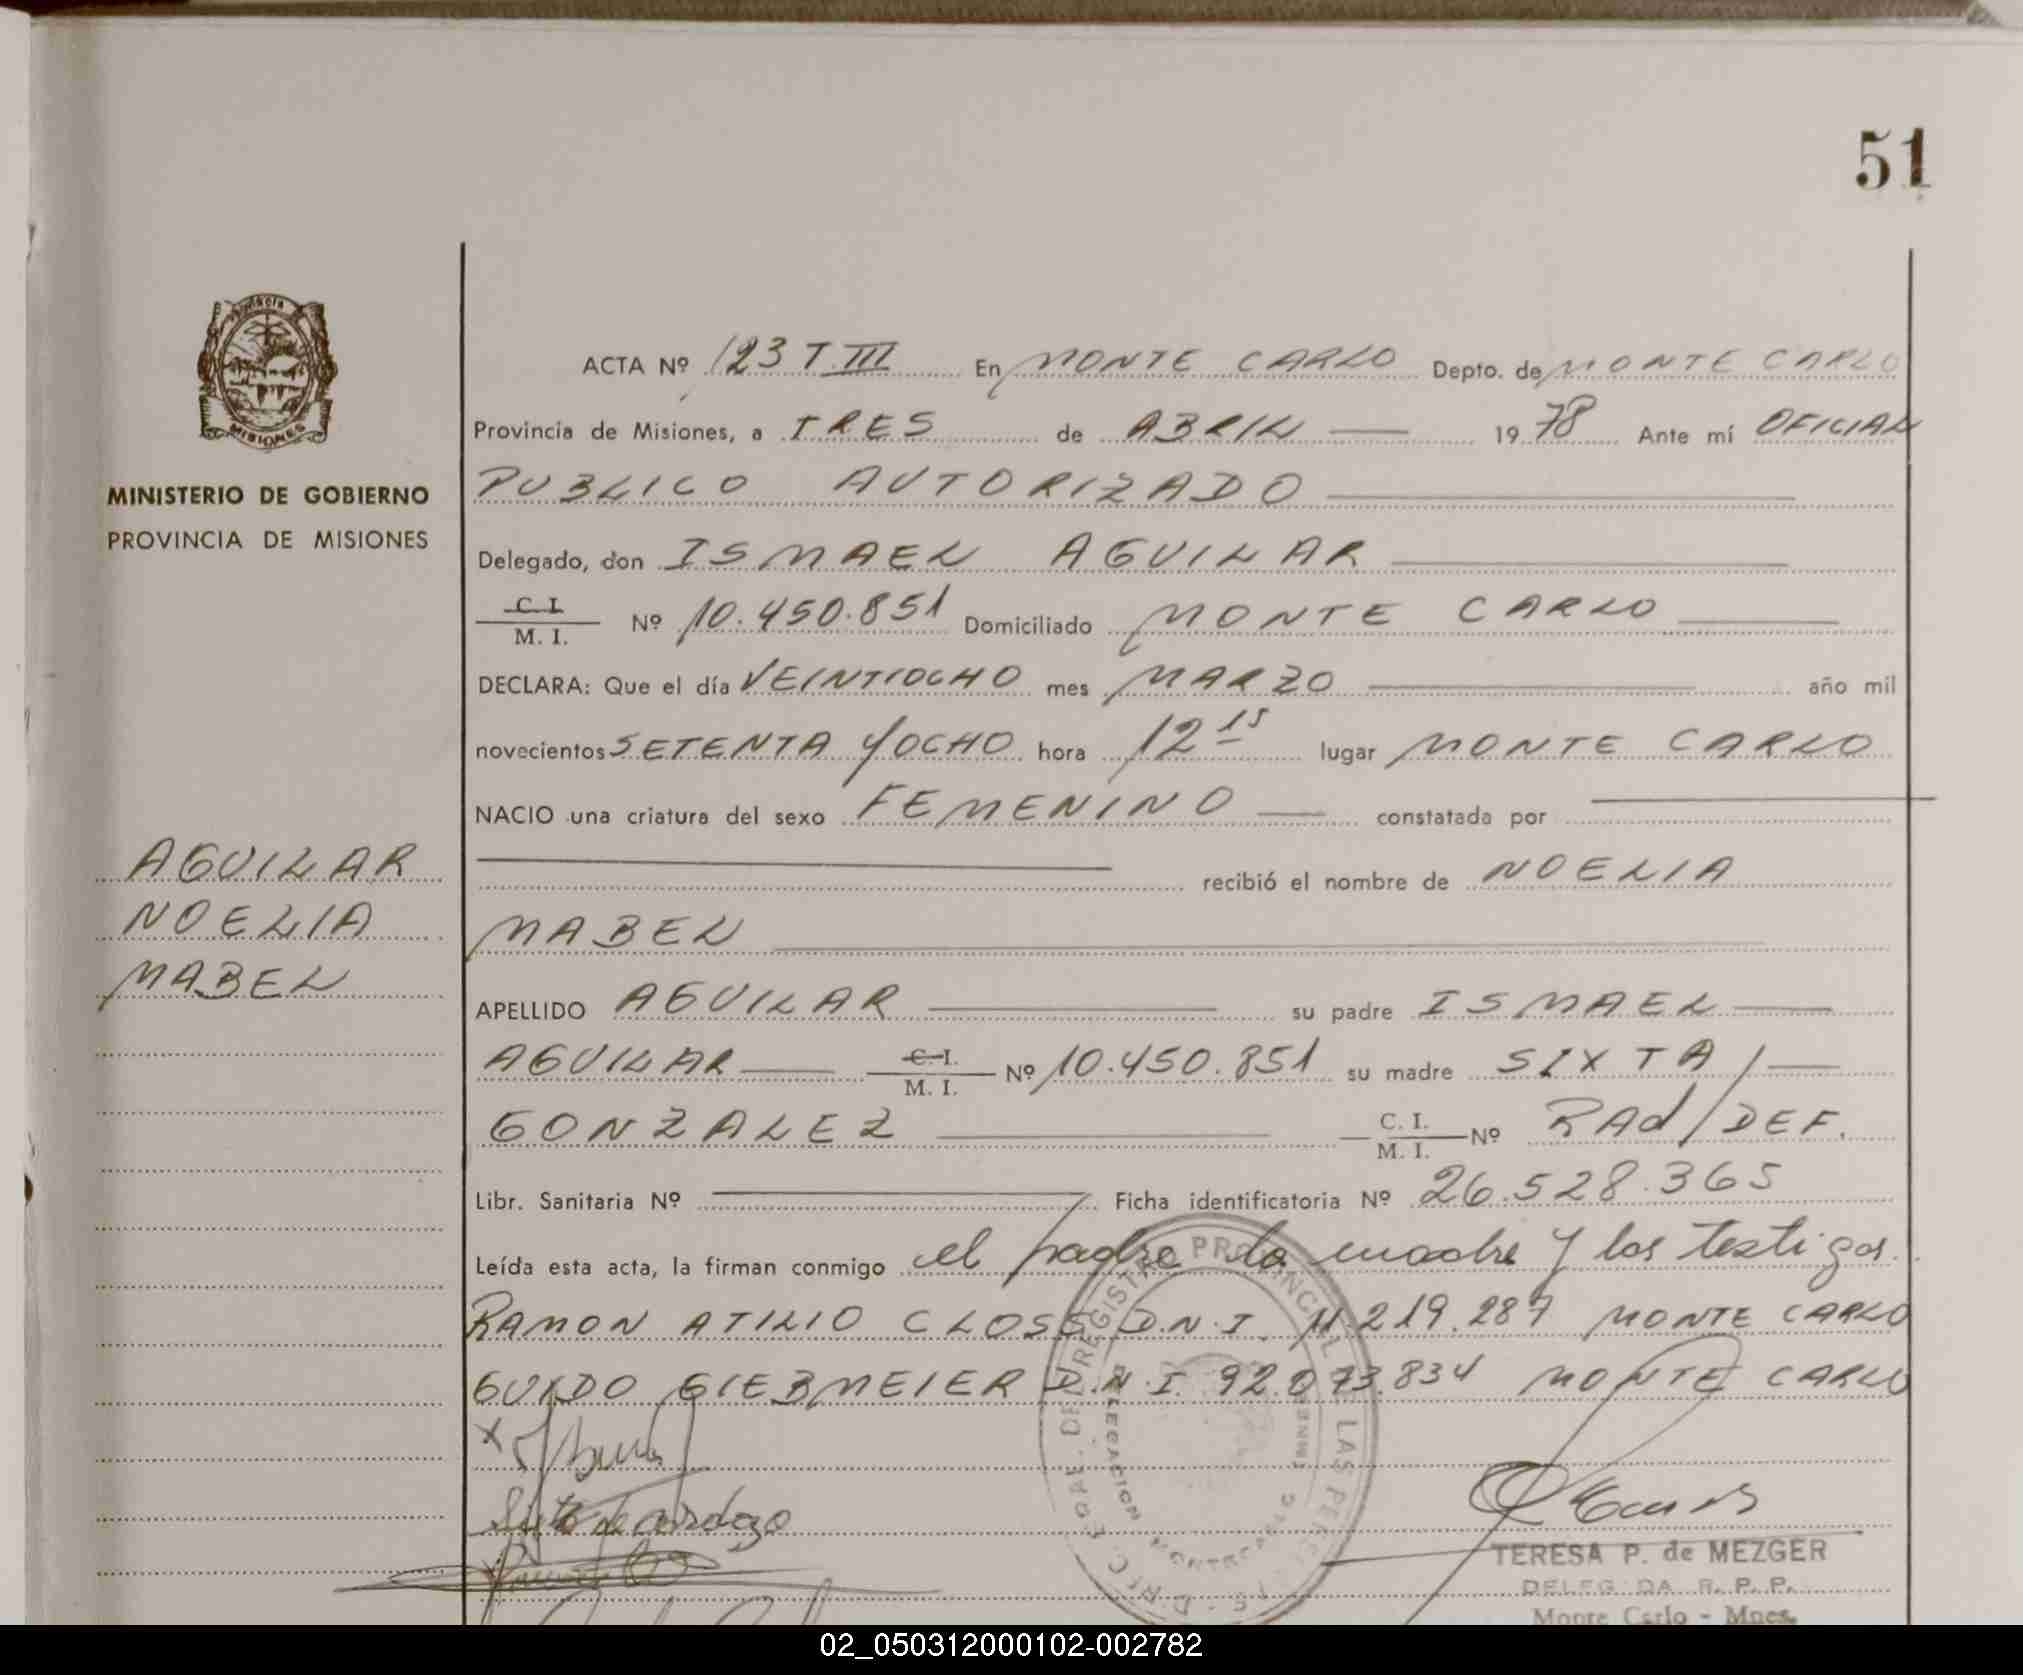 51
Provincia
MISIONES
MINISTERIO DE GOBIERNO
PROVINCIA DE MISIONES
AGUILAR
NOELIA
MABEL
ACTA Nº 123 T. III En MONTE CARLO Depto. de MONTE CARLO
Provincia de Misiones, a TRES de ABRIL 1978 Ante mí OFICIAL
PUBLICO AUTORIZADO
Delegado, don ISMAEL AGUILAR
C. I. M. I. Nº 10.450.851 Domiciliado MONTE CARLO
DECLARA: Que el día VEINTIOCHO mes MARZO año mil
novecientos SETENTA Y OCHO hora 12 15 lugar MONTE CARLO
NACIO una criatura del sexo FEMENINO constatada por
recibió el nombre de NOELIA
MABEL
APELLIDO AGUILAR su padre ISMAEL
AGUILAR C. I. M. I. Nº 10.450.851 su madre SIXTA
GONZALEZ C. I. M. I. Nº RAd/DEF.
Libr. Sanitaria Nº Ficha identificatoria Nº 26.528.365
Leída esta acta, la firman conmigo el padre la madre y los testigos.
RAMON ATILIO CLOSS D.N.I. 11.219.287 MONTE CARLO
GUIDO GIEBMEIER D.N.I. 92.073.834 MONTE CARLO
REGISTRO PROVINCIAL DE LAS PERS
DELEGACION MONTECARLO
TERESA P. de MEZGER
DELEGADA R. P. P.
Monte Carlo - Mnes.
02_050312000102-002782